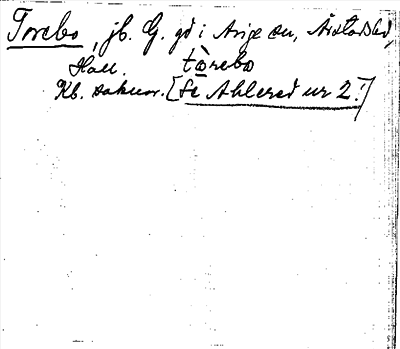 Torebo, jb. G. gd i Årige sn, Årstads hd,
Hall. tòrebo
Kb. saknar. [Se Ahlered nr 2.!]